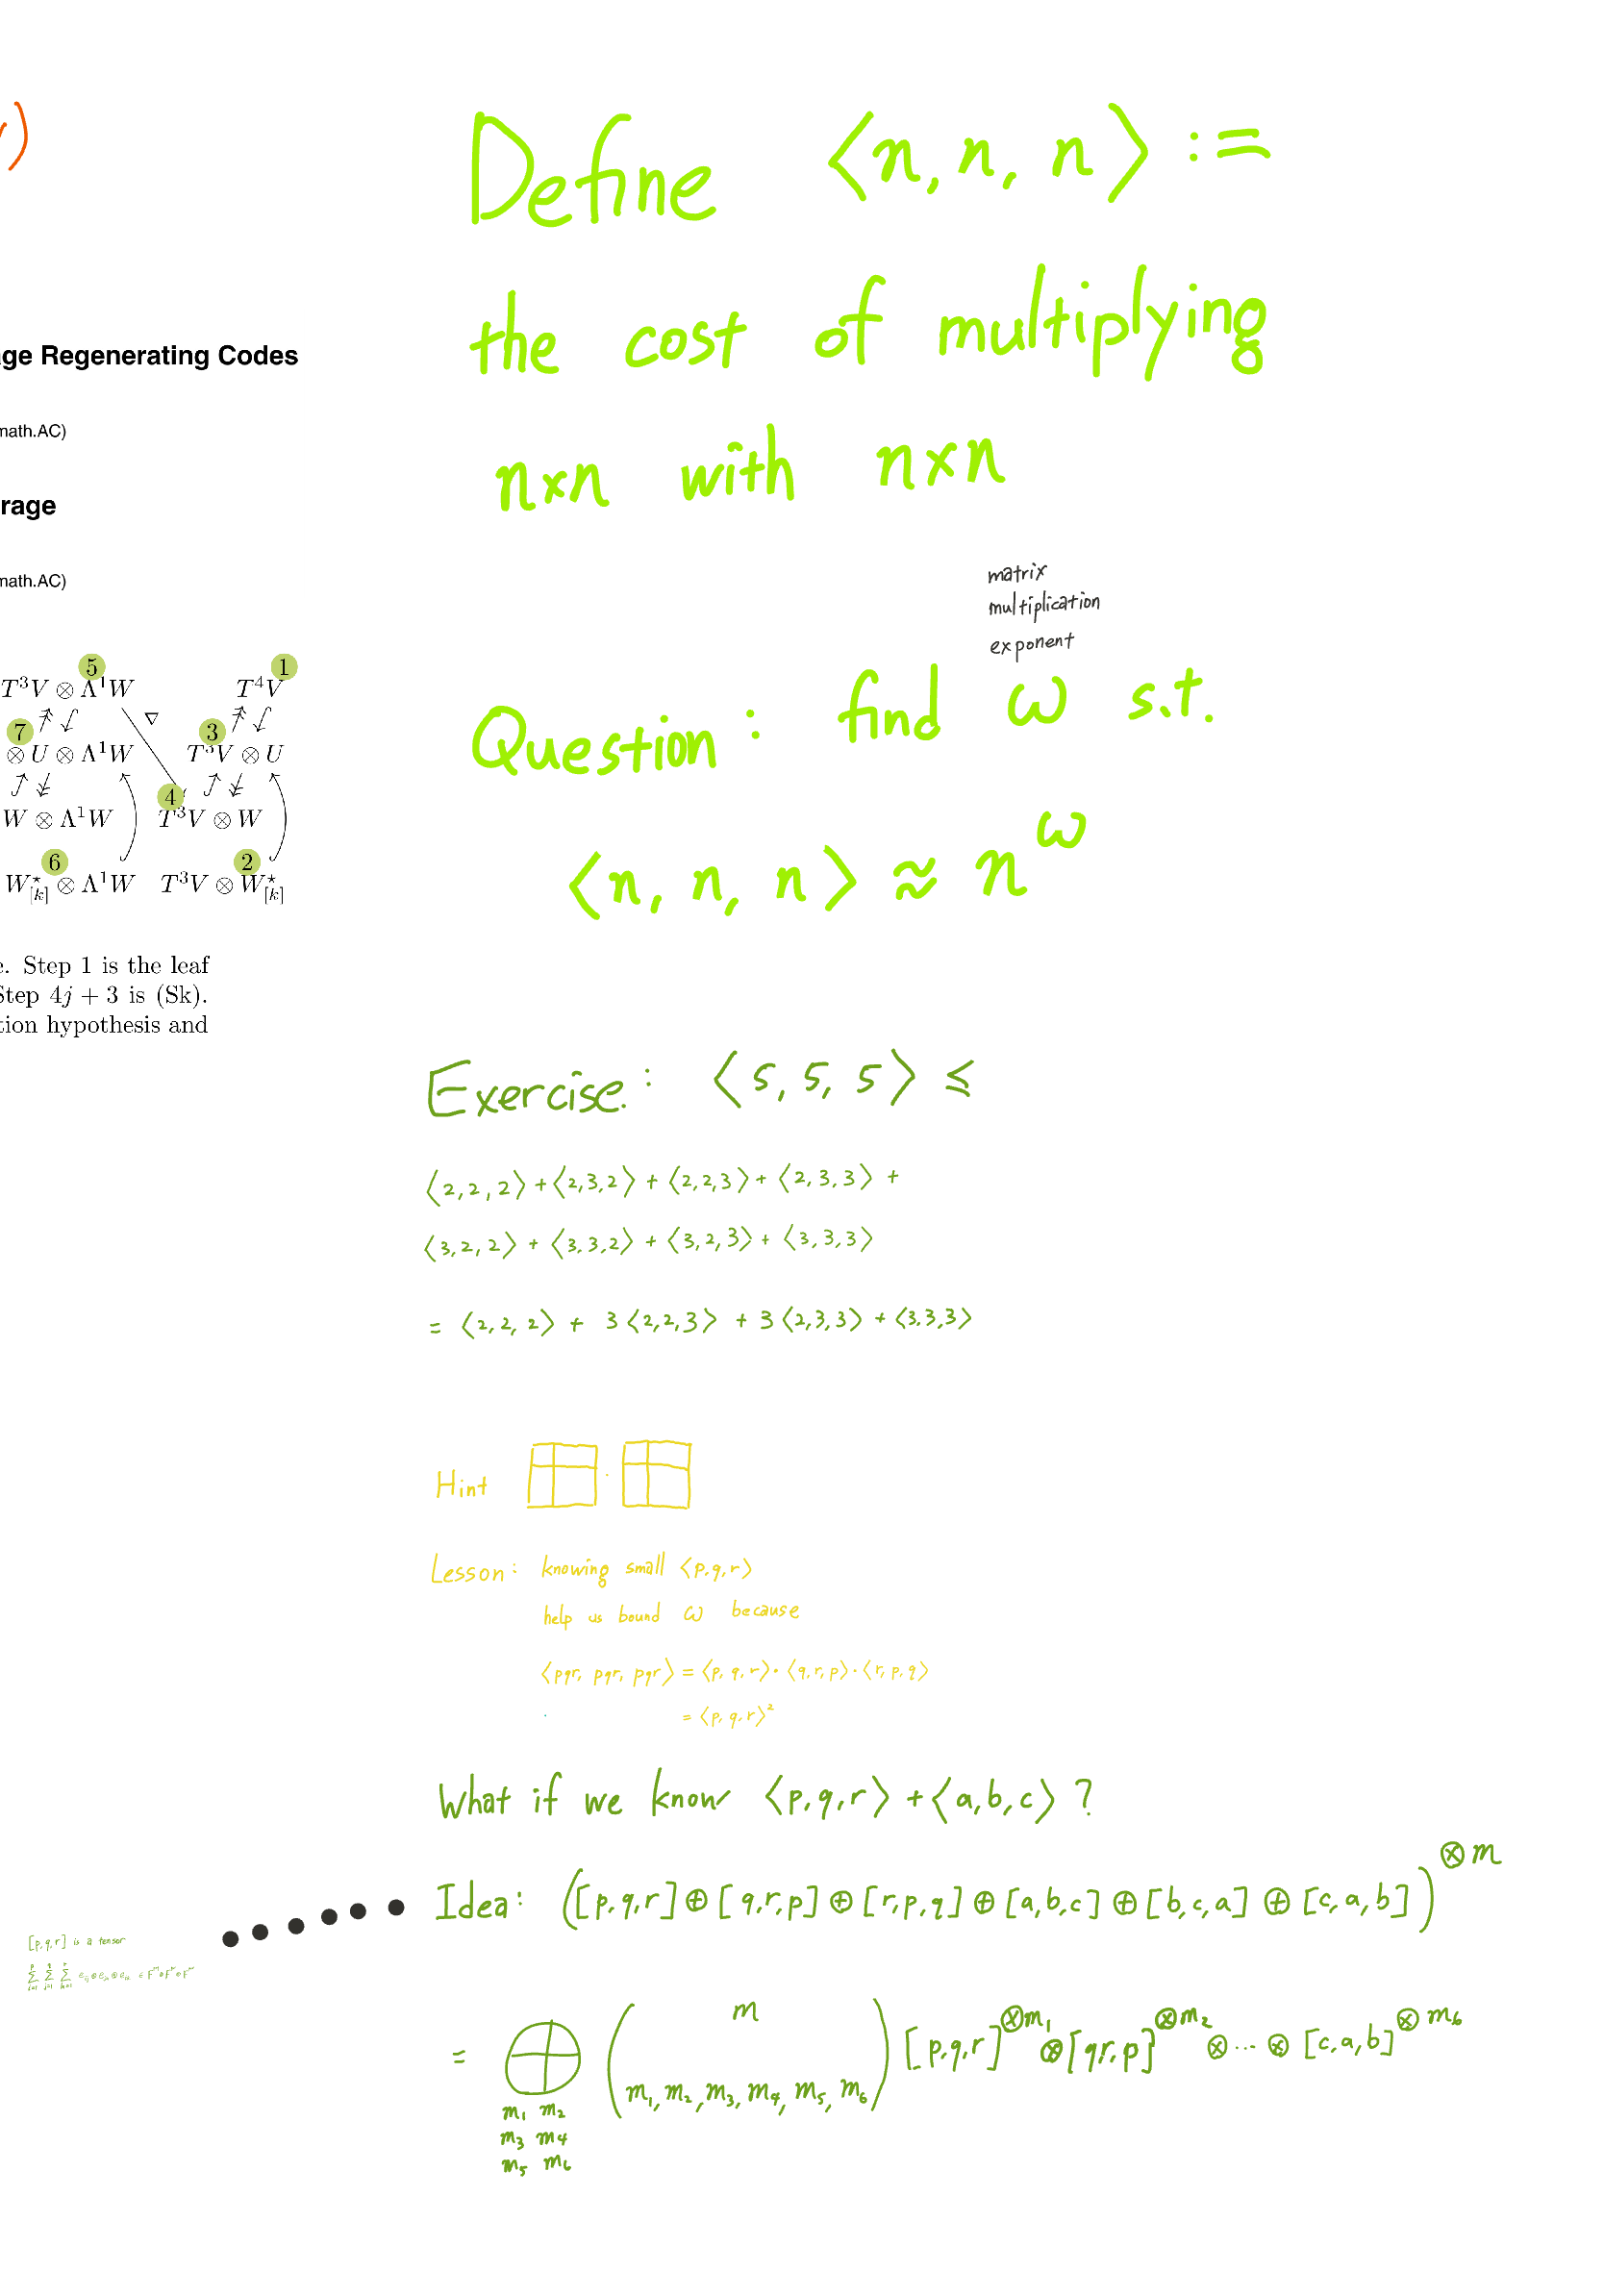 age Regenerating Codes
math.AC)
rage
math.AC)
5 1
T³V ⊗ Λ¹W T⁴V
▽
7 3
⊗ U ⊗ Λ¹W T³V ⊗ U
4
W ⊗ Λ¹W T³V ⊗ W
6 2
W*[k] ⊗ Λ¹W T³V ⊗ W*[k]
e. Step 1 is the leaf
Step 4j + 3 is (Sk).
tion hypothesis and
Define ⟨n, n, n⟩ :=
the cost of multiplying
n×n with n×n
matrix
multiplication
exponent
Question: find ω s.t.
⟨n, n, n⟩ ≈ n^ω
Exercise: ⟨5, 5, 5⟩ ≤
⟨2,2,2⟩ + ⟨2,3,2⟩ + ⟨2,2,3⟩ + ⟨2,3,3⟩ +
⟨3,2,2⟩ + ⟨3,3,2⟩ + ⟨3,2,3⟩ + ⟨3,3,3⟩
= ⟨2,2,2⟩ + 3⟨2,2,3⟩ + 3⟨2,3,3⟩ + ⟨3,3,3⟩
Hint
Lesson: knowing small ⟨p,q,r⟩
help us bound ω because
⟨pqr, pqr, pqr⟩ = ⟨p,q,r⟩·⟨q,r,p⟩·⟨r,p,q⟩
= ⟨p,q,r⟩²
What if we know ⟨p,q,r⟩ + ⟨a,b,c⟩ ?
Idea: ([p,q,r] ⊕ [q,r,p] ⊕ [r,p,q] ⊕ [a,b,c] ⊕ [b,c,a] ⊕ [c,a,b])^⊗m
[p,q,r] is a tensor
= ⊕ (m
m₁, m₂, m₃, m₄, m₅, m₆) [p,q,r]^⊗m₁ ⊗ [q,r,p]^⊗m₂ ⊗ ... ⊗ [c,a,b]^⊗m₆
m₁ m₂
m₃ m₄
m₅ m₆